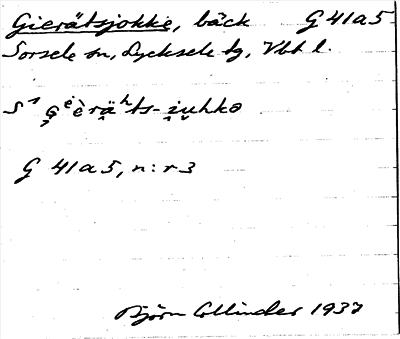 Gierätsjokke, bäck G 41a5
Sorsele sn, Lycksele tg, Vbt l.
G 41a5, n:r 3
Björn Collinder 1937